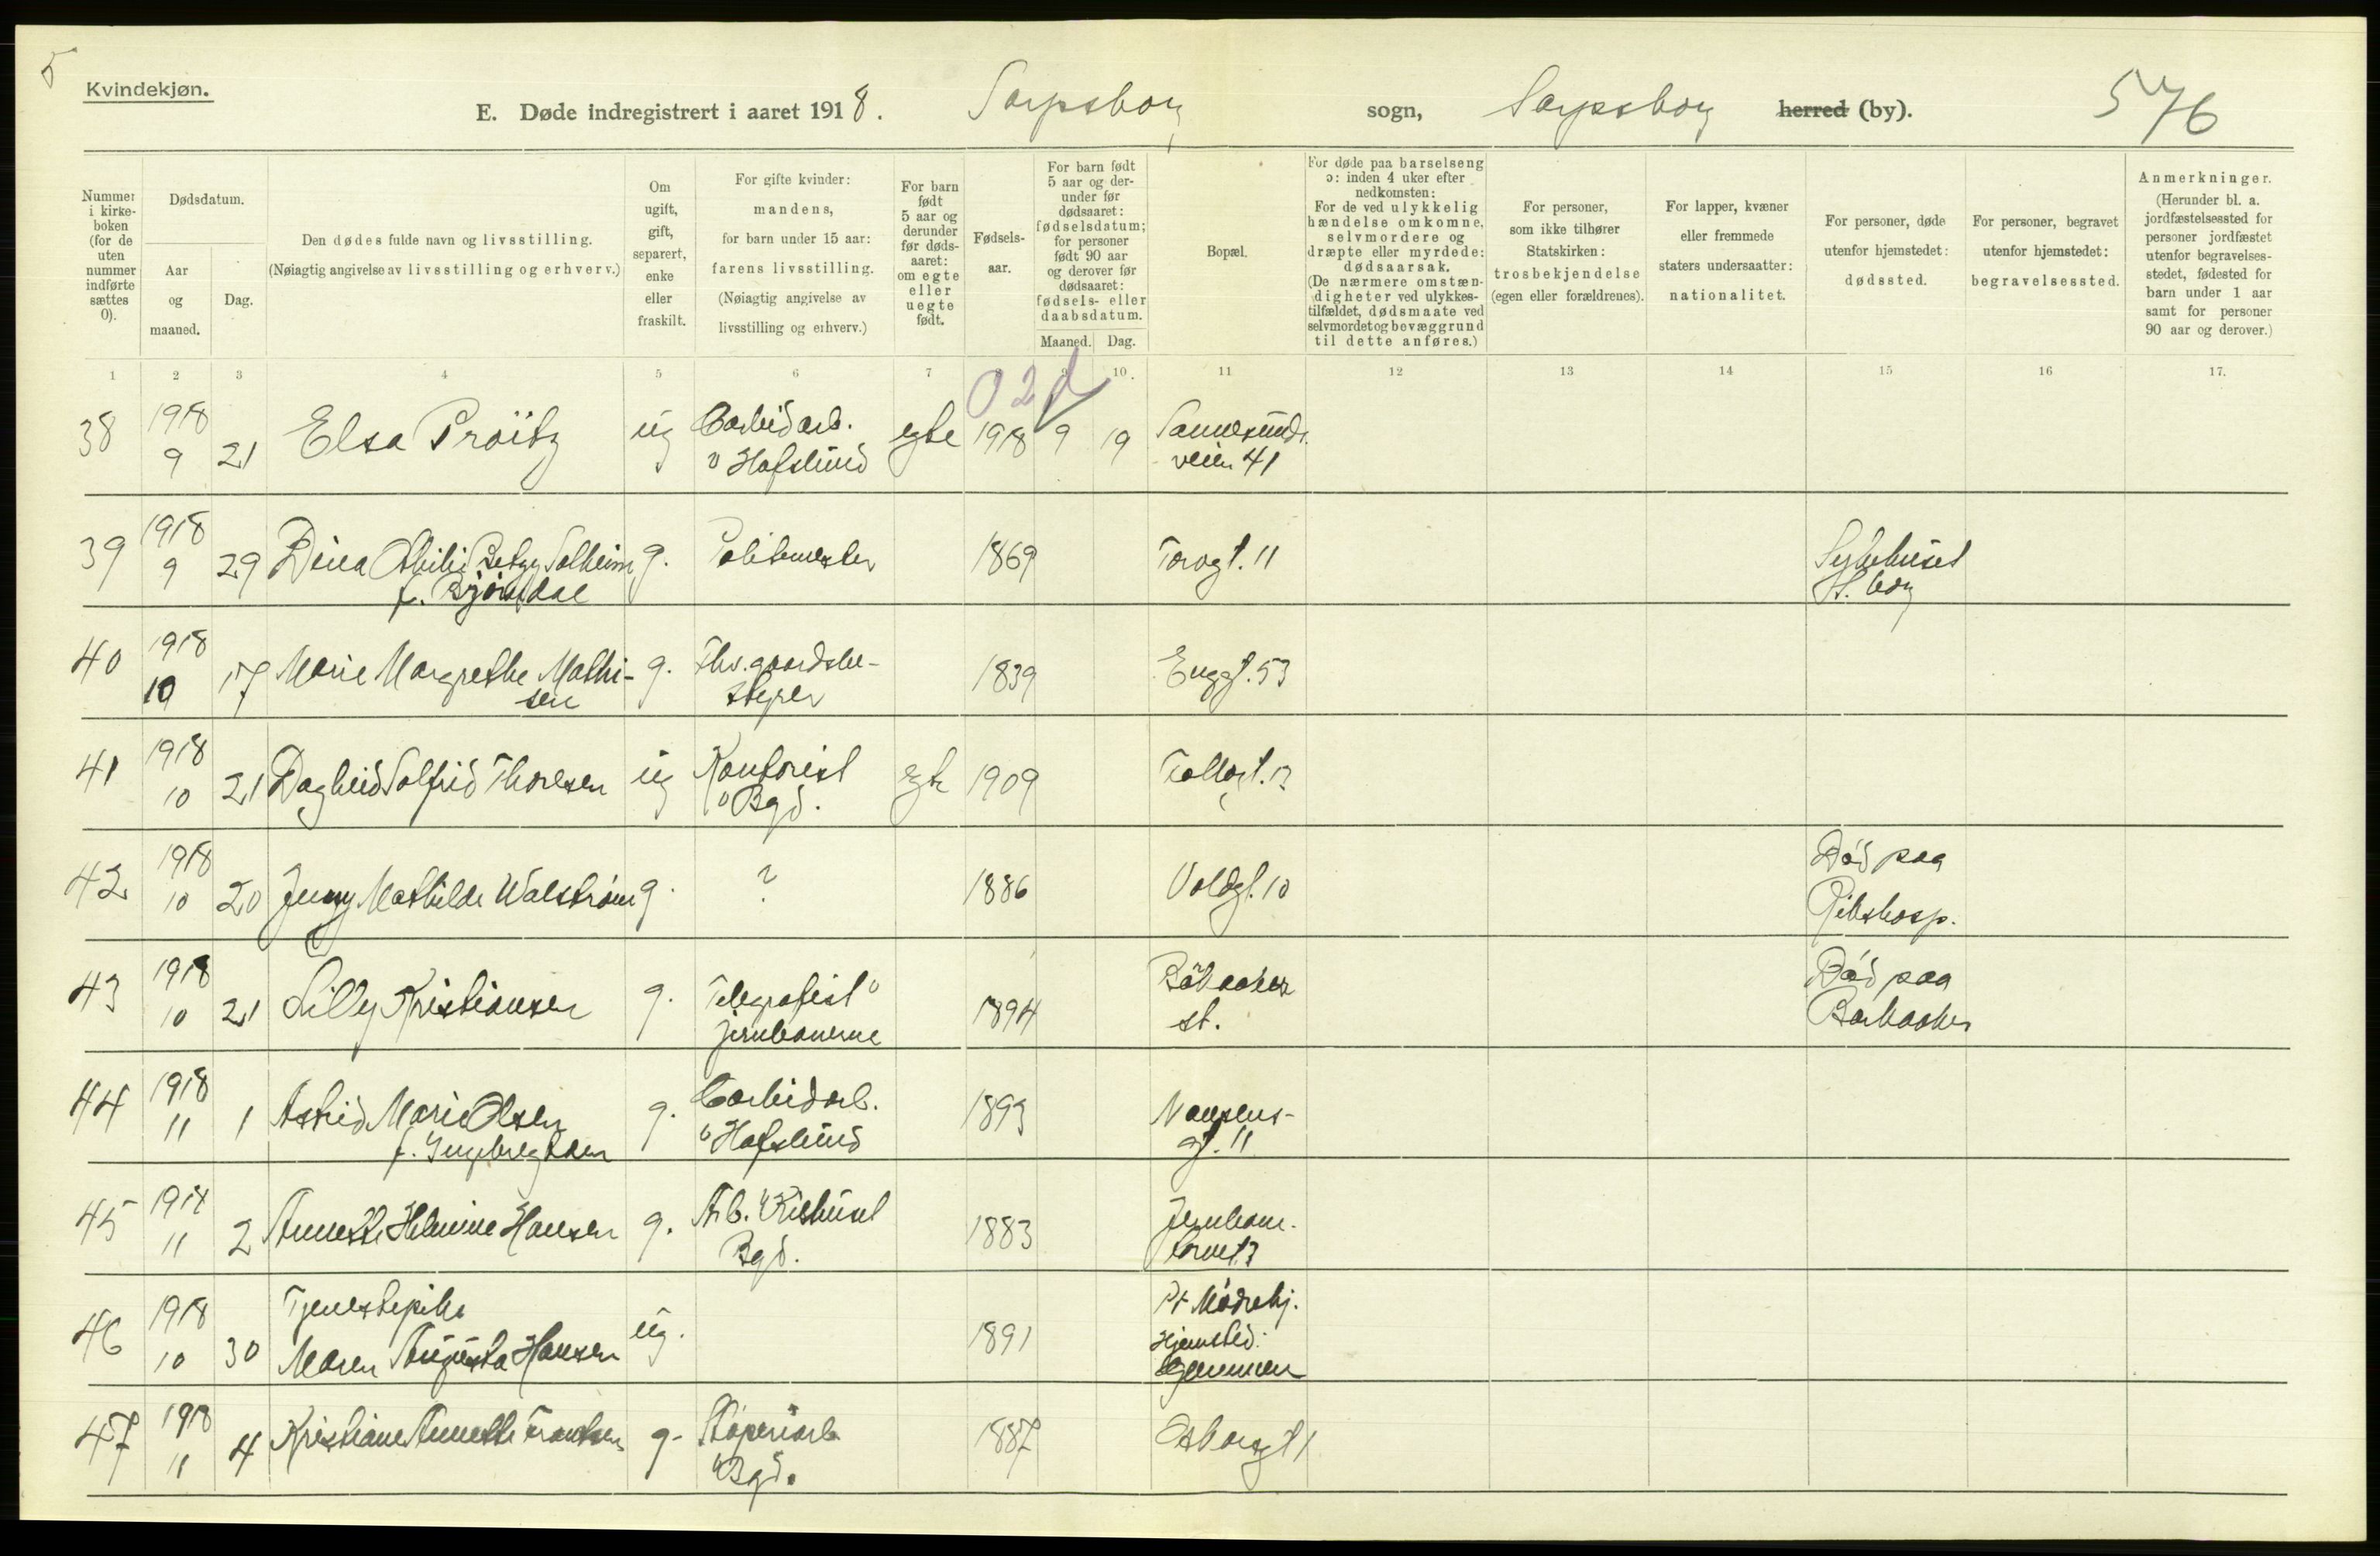 5
Kvindekjøn.
E. Døde indregistrert i aaret 1918. Sarpsborg sogn, Sarpsborg herred (by). 576
Nummer i kirkeboken (for de uten nummer indførte sættes 0).
Dødsdatum.
Aar og maaned.
Dag.
Den dødes fulde navn og livsstilling.
(Nøiagtig angivelse av livsstilling og erhverv.)
Om ugift, gift, separert, enke eller fraskilt.
For gifte kvinder: mandens, for barn under 15 aar: farens livsstilling.
(Nøiagtig angivelse av livsstilling og erhverv.)
For barn født 5 aar og derunder før dødsaaret: om egte eller uegte født.
Fødselsaar.
For barn født 5 aar og derunder før dødsaaret: fødselsdatum; for personer født 90 aar og derover før dødsaaret: fødsels- eller daabsdatum.
Maaned. Dag.
Bopæl.
For døde paa barselseng ɔ: inden 4 uker efter nedkomsten:
For de ved ulykkelig hændelse omkomne, selvmordere og dræpte eller myrdede: dødsaarsak.
(De nærmere omstændigheter ved ulykkestilfældet, dødsmaate ved selvmordet og bevæggrund til dette anføres.)
For personer, som ikke tilhører Statskirken: trosbekjendelse (egen eller forældrenes).
For lapper, kvæner eller fremmede staters undersaatter: nationalitet.
For personer, døde utenfor hjemstedet: dødssted.
For personer, begravet utenfor hjemstedet: begravelsessted.
Anmerkninger.
(Herunder bl. a. jordfæstelsessted for personer jordfæstet utenfor begravelsesstedet, fødested for barn under 1 aar samt for personer 90 aar og derover.)
1 2 3 4 5 6 7 8 9 10. 11 12 13 14 15 16 17.
02d
38 1918 9 21 Elsa Pröitz ug Carbidarb. v Hafslund egte 1918 9 19 Sannesunds veien 41
39 1918 9 29 Dina Othilie Betzy Solheim f. Bjørndal g. Politimester 1869 Torvgt. 11 Sykehuset S. borg
40 1918 10 17 Marie Margrethe Mathisen g. Fhv. gaardsbestyrer 1839 Enggt. 53
41 1918 10 21 Dagheid Solfrid Thoresen ug Kontorist v Bgd. egte 1909
42 1918 10 20 Jenny Mathilde Walstrøm g. ? 1886 Voldgt. 10 Død paa Rikshosp.
43 1918 10 21 Lilly Kristiansen g. Telegrafist v jernbanerne 1894 st. Død paa
44 1918 11 1 Astrid Marie Olsen f. Ingebregtsen g. Carbidarb. v Hafslund 1893 Nansensgt. 11
45 1918 11 2 Annette Helmine Hansen g. Arb. v Kishuset Bgd. 1883 Jernbanetorvet 3
46 1918 10 30 Tjenestepike Maren Augusta Hansen ug. 1891 Pt Mødrehj. Hjemsted: Glemmen
47 1918 11 4 Kristiane Annette Frantsen g. Støperiarb v Bgd. 1887 Osborggt 1